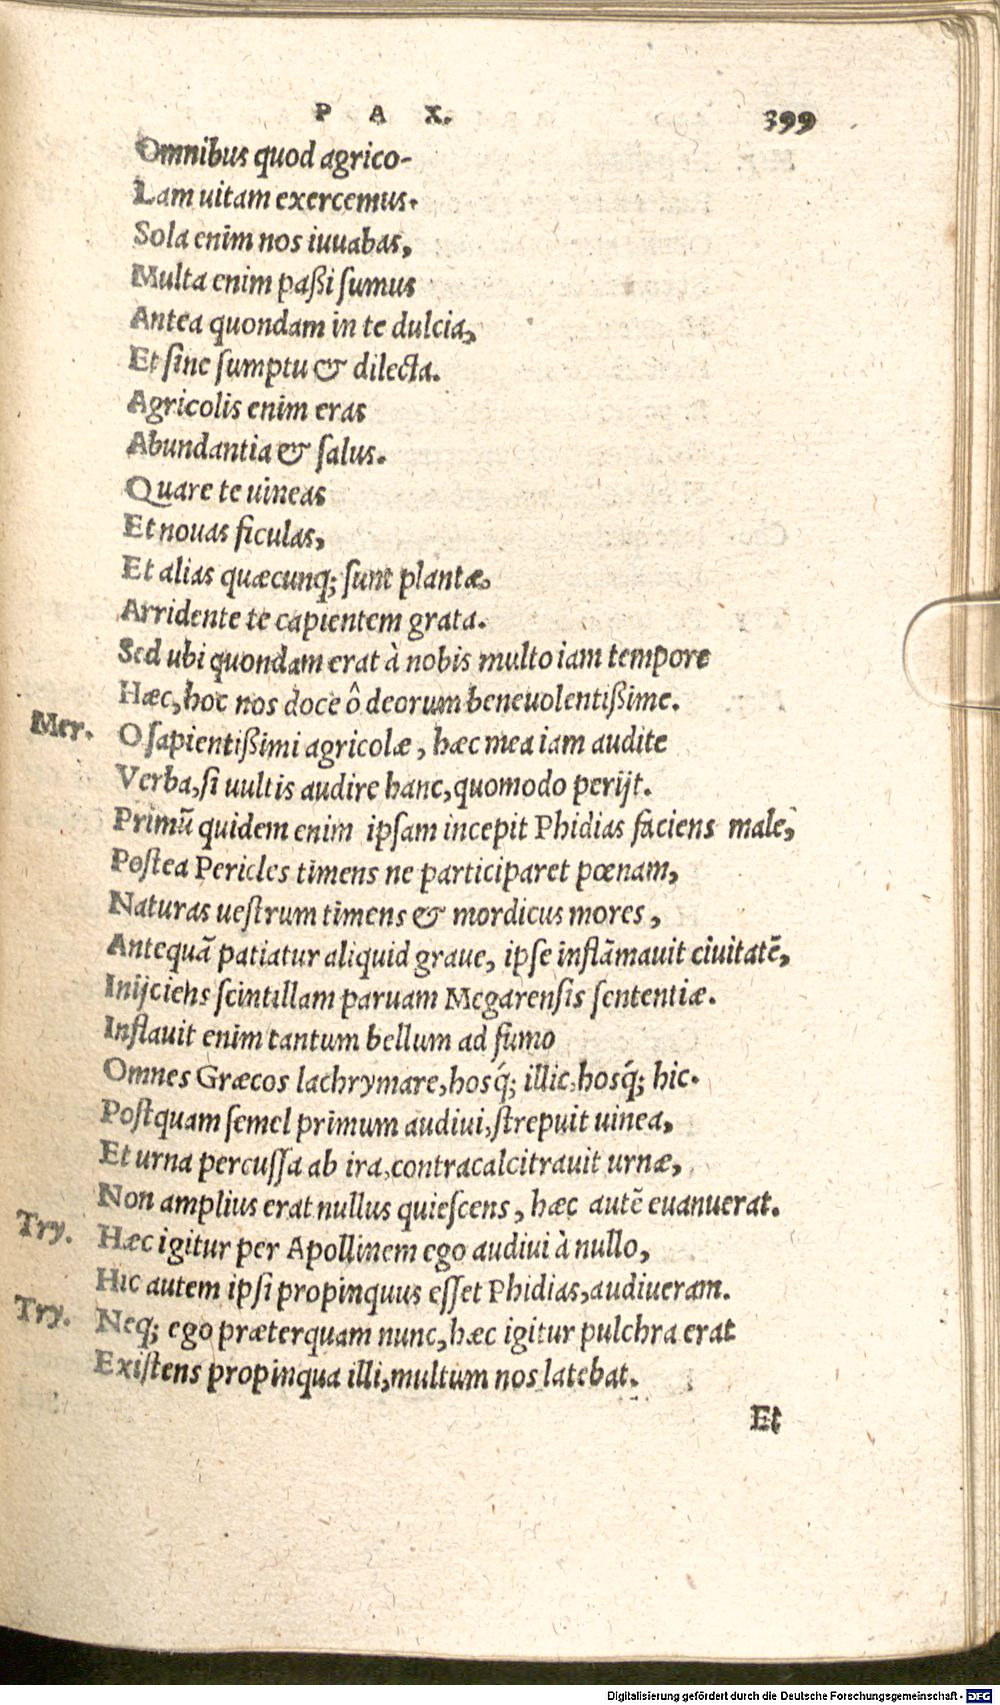 P A X. 399
Omnibus quod agrico-
Lam uitam exercemus.
Sola enim nos iuuabas,
Multa enim paßi ſumus
Antea quondam in te dulcia,
Et ſine ſumptu & dilecta.
Agricolis enim eras
Abundantia & ſalus.
Quare te uineas
Et nouas ficulas,
Et alias quæcunq; ſunt plantæ,
Arridente te capientem grata.
Sed ubi quondam erat à nobis multo iam tempore
Hæc, hoc nos doce ô deorum beneuolentißime.
Mer. O ſapientißimi agricolæ, hæc mea iam audite
Verba, ſi uultis audire hanc, quomodo perijt.
Primũ quidem enim ipſam incepit Phidias faciens male,
Poſtea Pericles timens ne participaret pœnam,
Naturas ueſtrum timens & mordicus mores,
Antequã patiatur aliquid graue, ipſe inflãmauit ciuitatẽ,
Inijciens ſcintillam paruam Megarenſis ſententiæ.
Inflauit enim tantum bellum ad fumo
Omnes Græcos lachrymare, hosq́; illic, hosq́; hic.
Poſtquam ſemel primum audiui, ſtrepuit uinea,
Et urna percuſſa ab ira, contracalcitrauit urnæ,
Non amplius erat nullus quieſcens, hæc autẽ euanuerat.
Try. Hæc igitur per Apollinem ego audiui à nullo,
Hic autem ipſi propinquus eſſet Phidias, audiueram.
Try. Neq; ego præterquam nunc, hæc igitur pulchra erat
Exiſtens propinqua illi, multum nos latebat.
Et
Digitalisierung gefördert durch die Deutsche Forschungsgemeinschaft - DFG